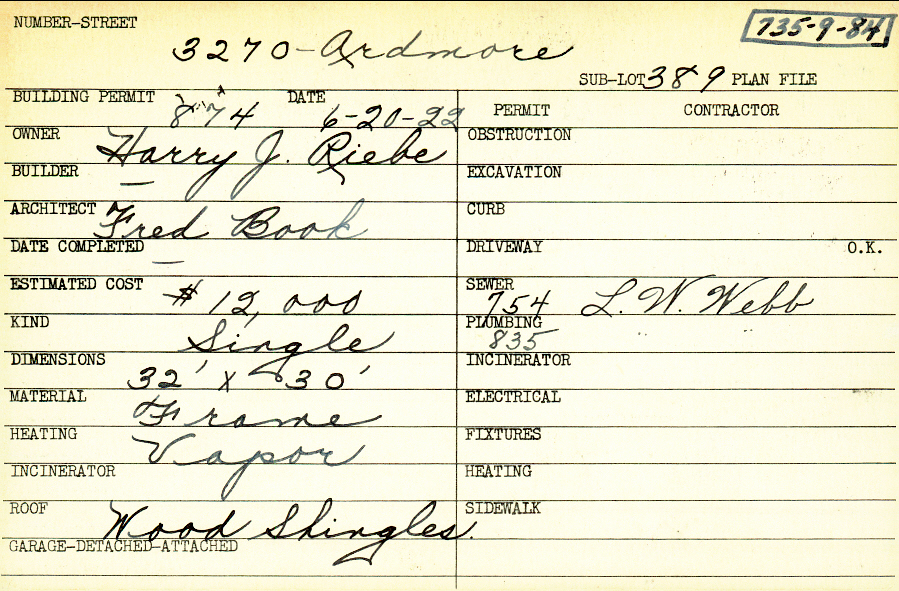 NUMBER-STREET
735-9-84
3270-Ardmore
SUB-LOT 389 PLAN FILE
BUILDING PERMIT 874 DATE 6-20-22
PERMIT CONTRACTOR
OWNER Harry J. Riebe
OBSTRUCTION
BUILDER —
EXCAVATION
ARCHITECT Fred Book
CURB
DATE COMPLETED —
DRIVEWAY O.K.
ESTIMATED COST $12,000
SEWER 754 L. W. Webb
KIND Single
PLUMBING 835 " "
DIMENSIONS 32' X 30'
INCINERATOR
MATERIAL Frame
ELECTRICAL
HEATING Vapor
FIXTURES
INCINERATOR
HEATING
ROOF Wood Shingles.
SIDEWALK
GARAGE-DETACHED-ATTACHED